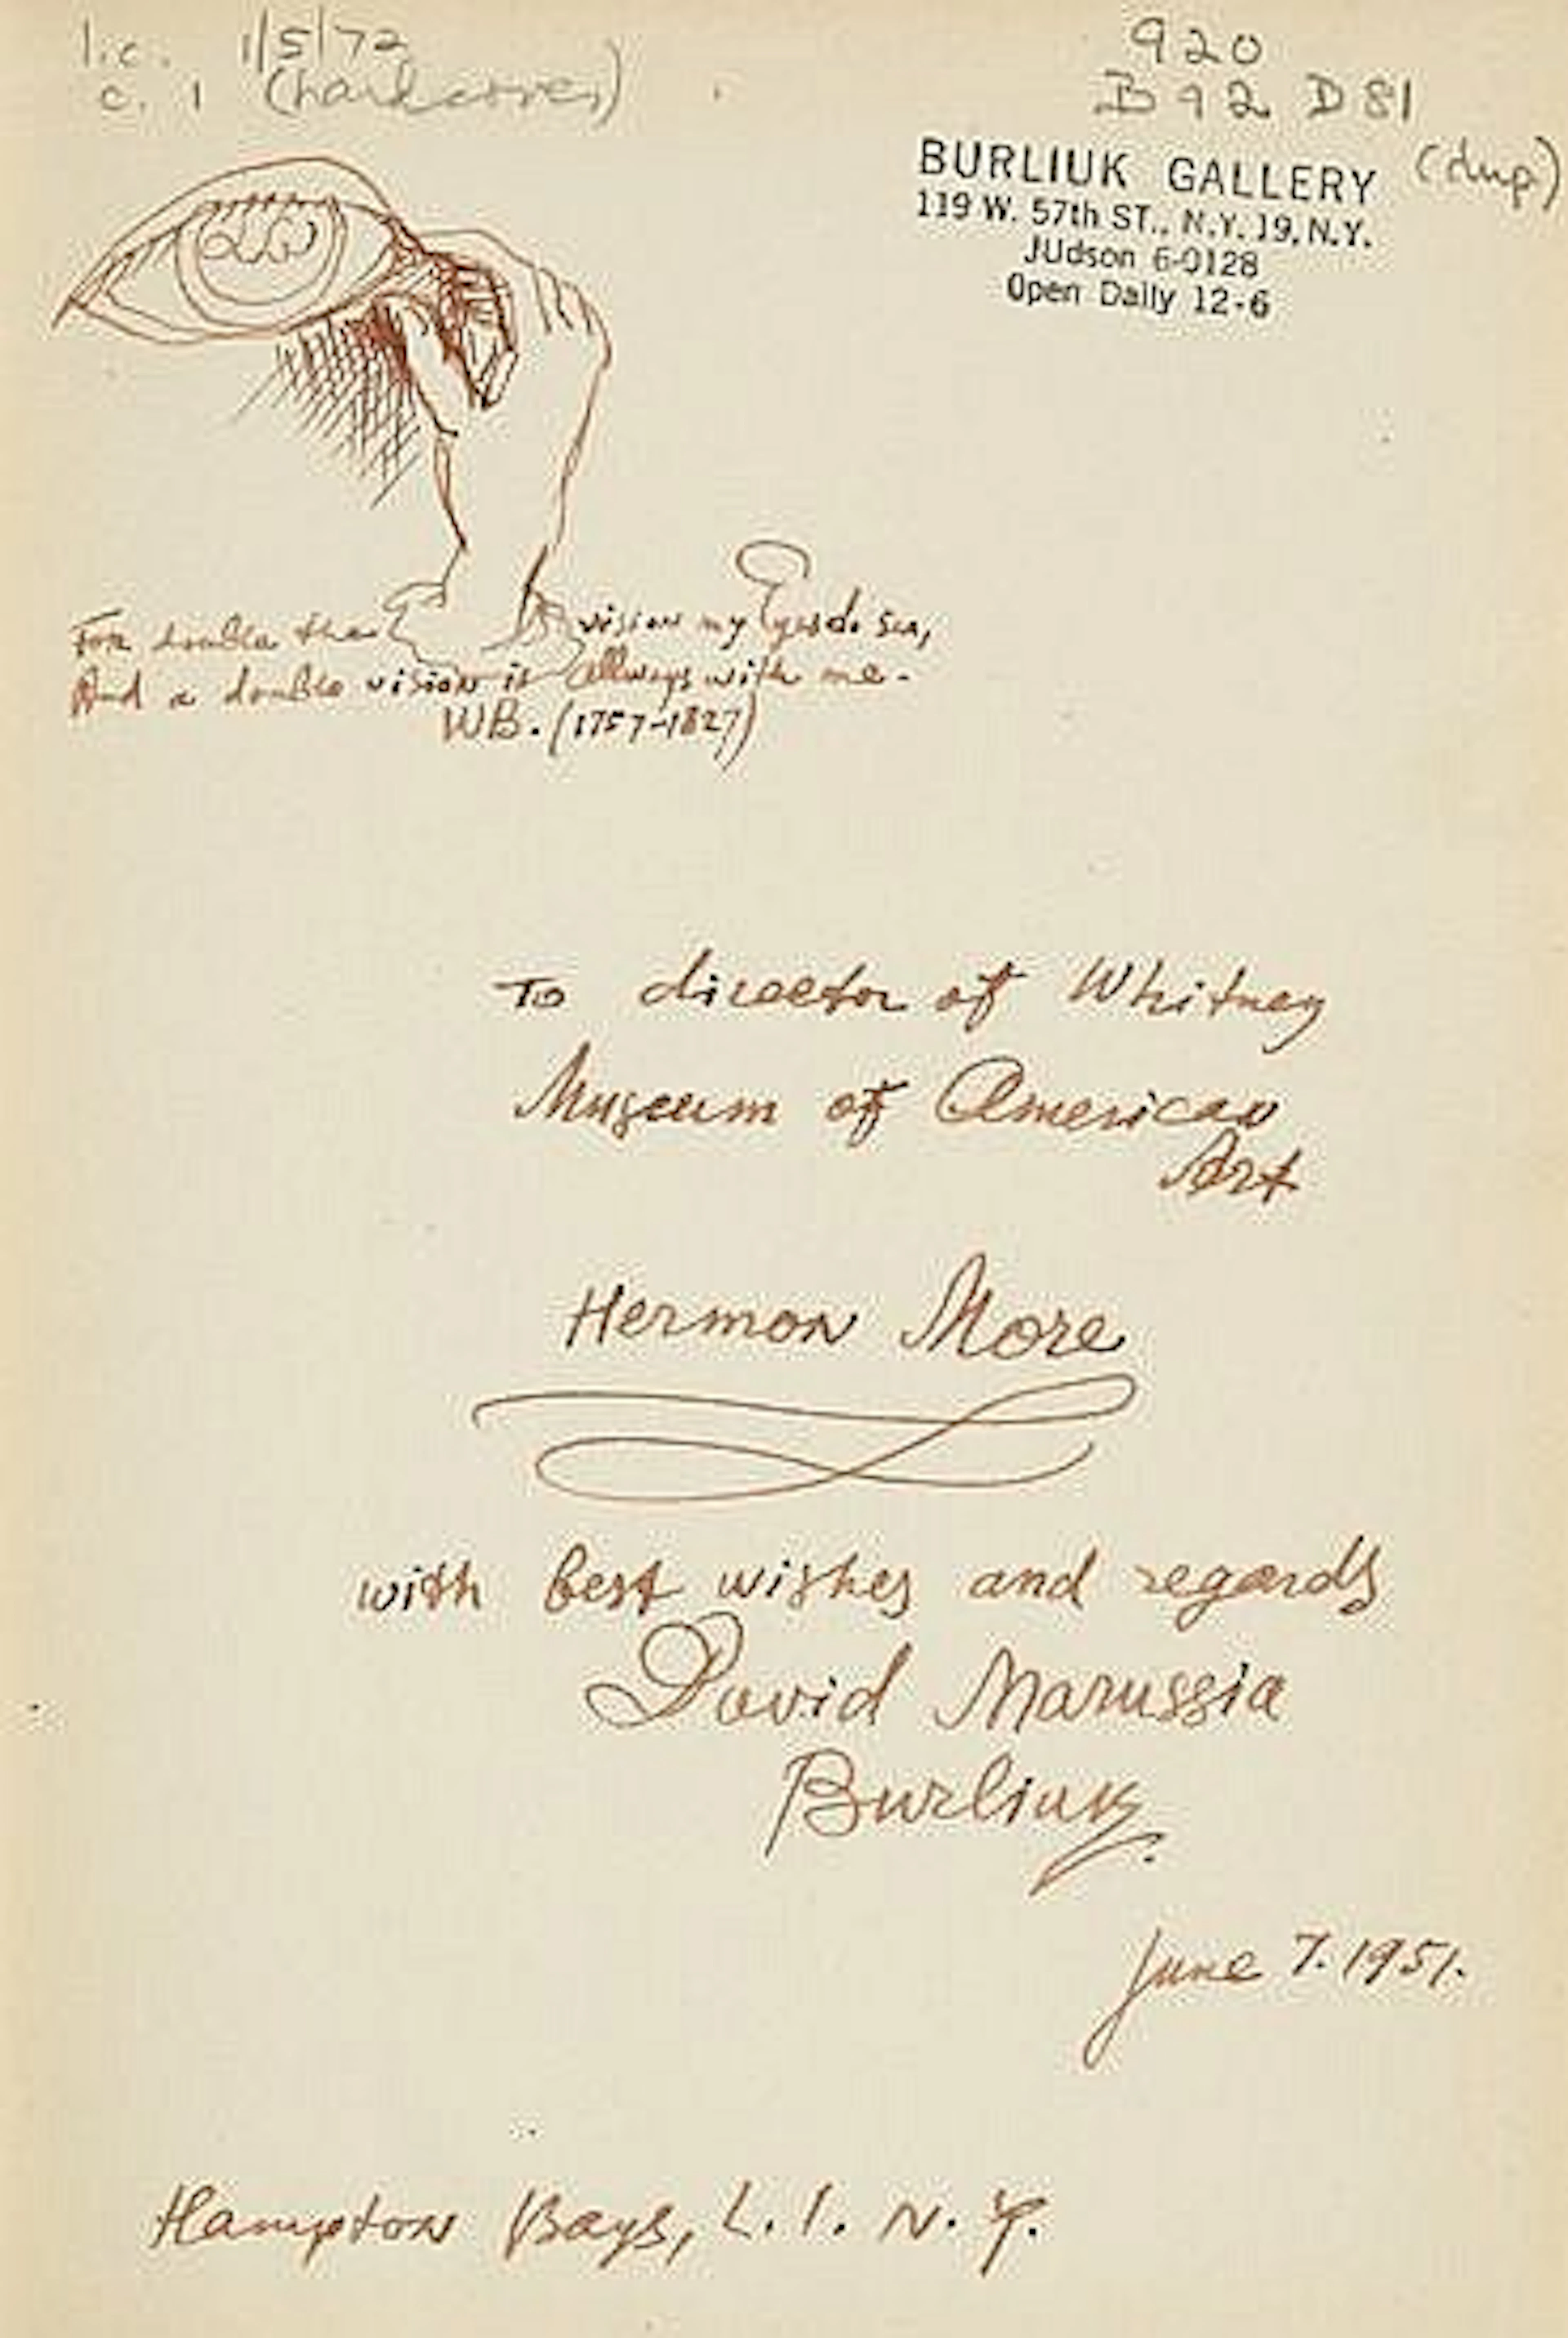 l.c. 1/5/72
c. 1 (hardcover)
920
B92 D81
(dup)
BURLIUK GALLERY
119 W. 57th ST., N.Y. 19, N.Y.
JUdson 6-0128
Open Daily 12-6
For double the vision my Eyes do see,
And a double vision is allways with me-
WB. (1757-1827)
To director of Whitney
Museum of American
Art
Hermon More
with best wishes and regards
David Marussia
Burliuk.
June 7. 1951.
Hampton Bays, L. I. N. Y.